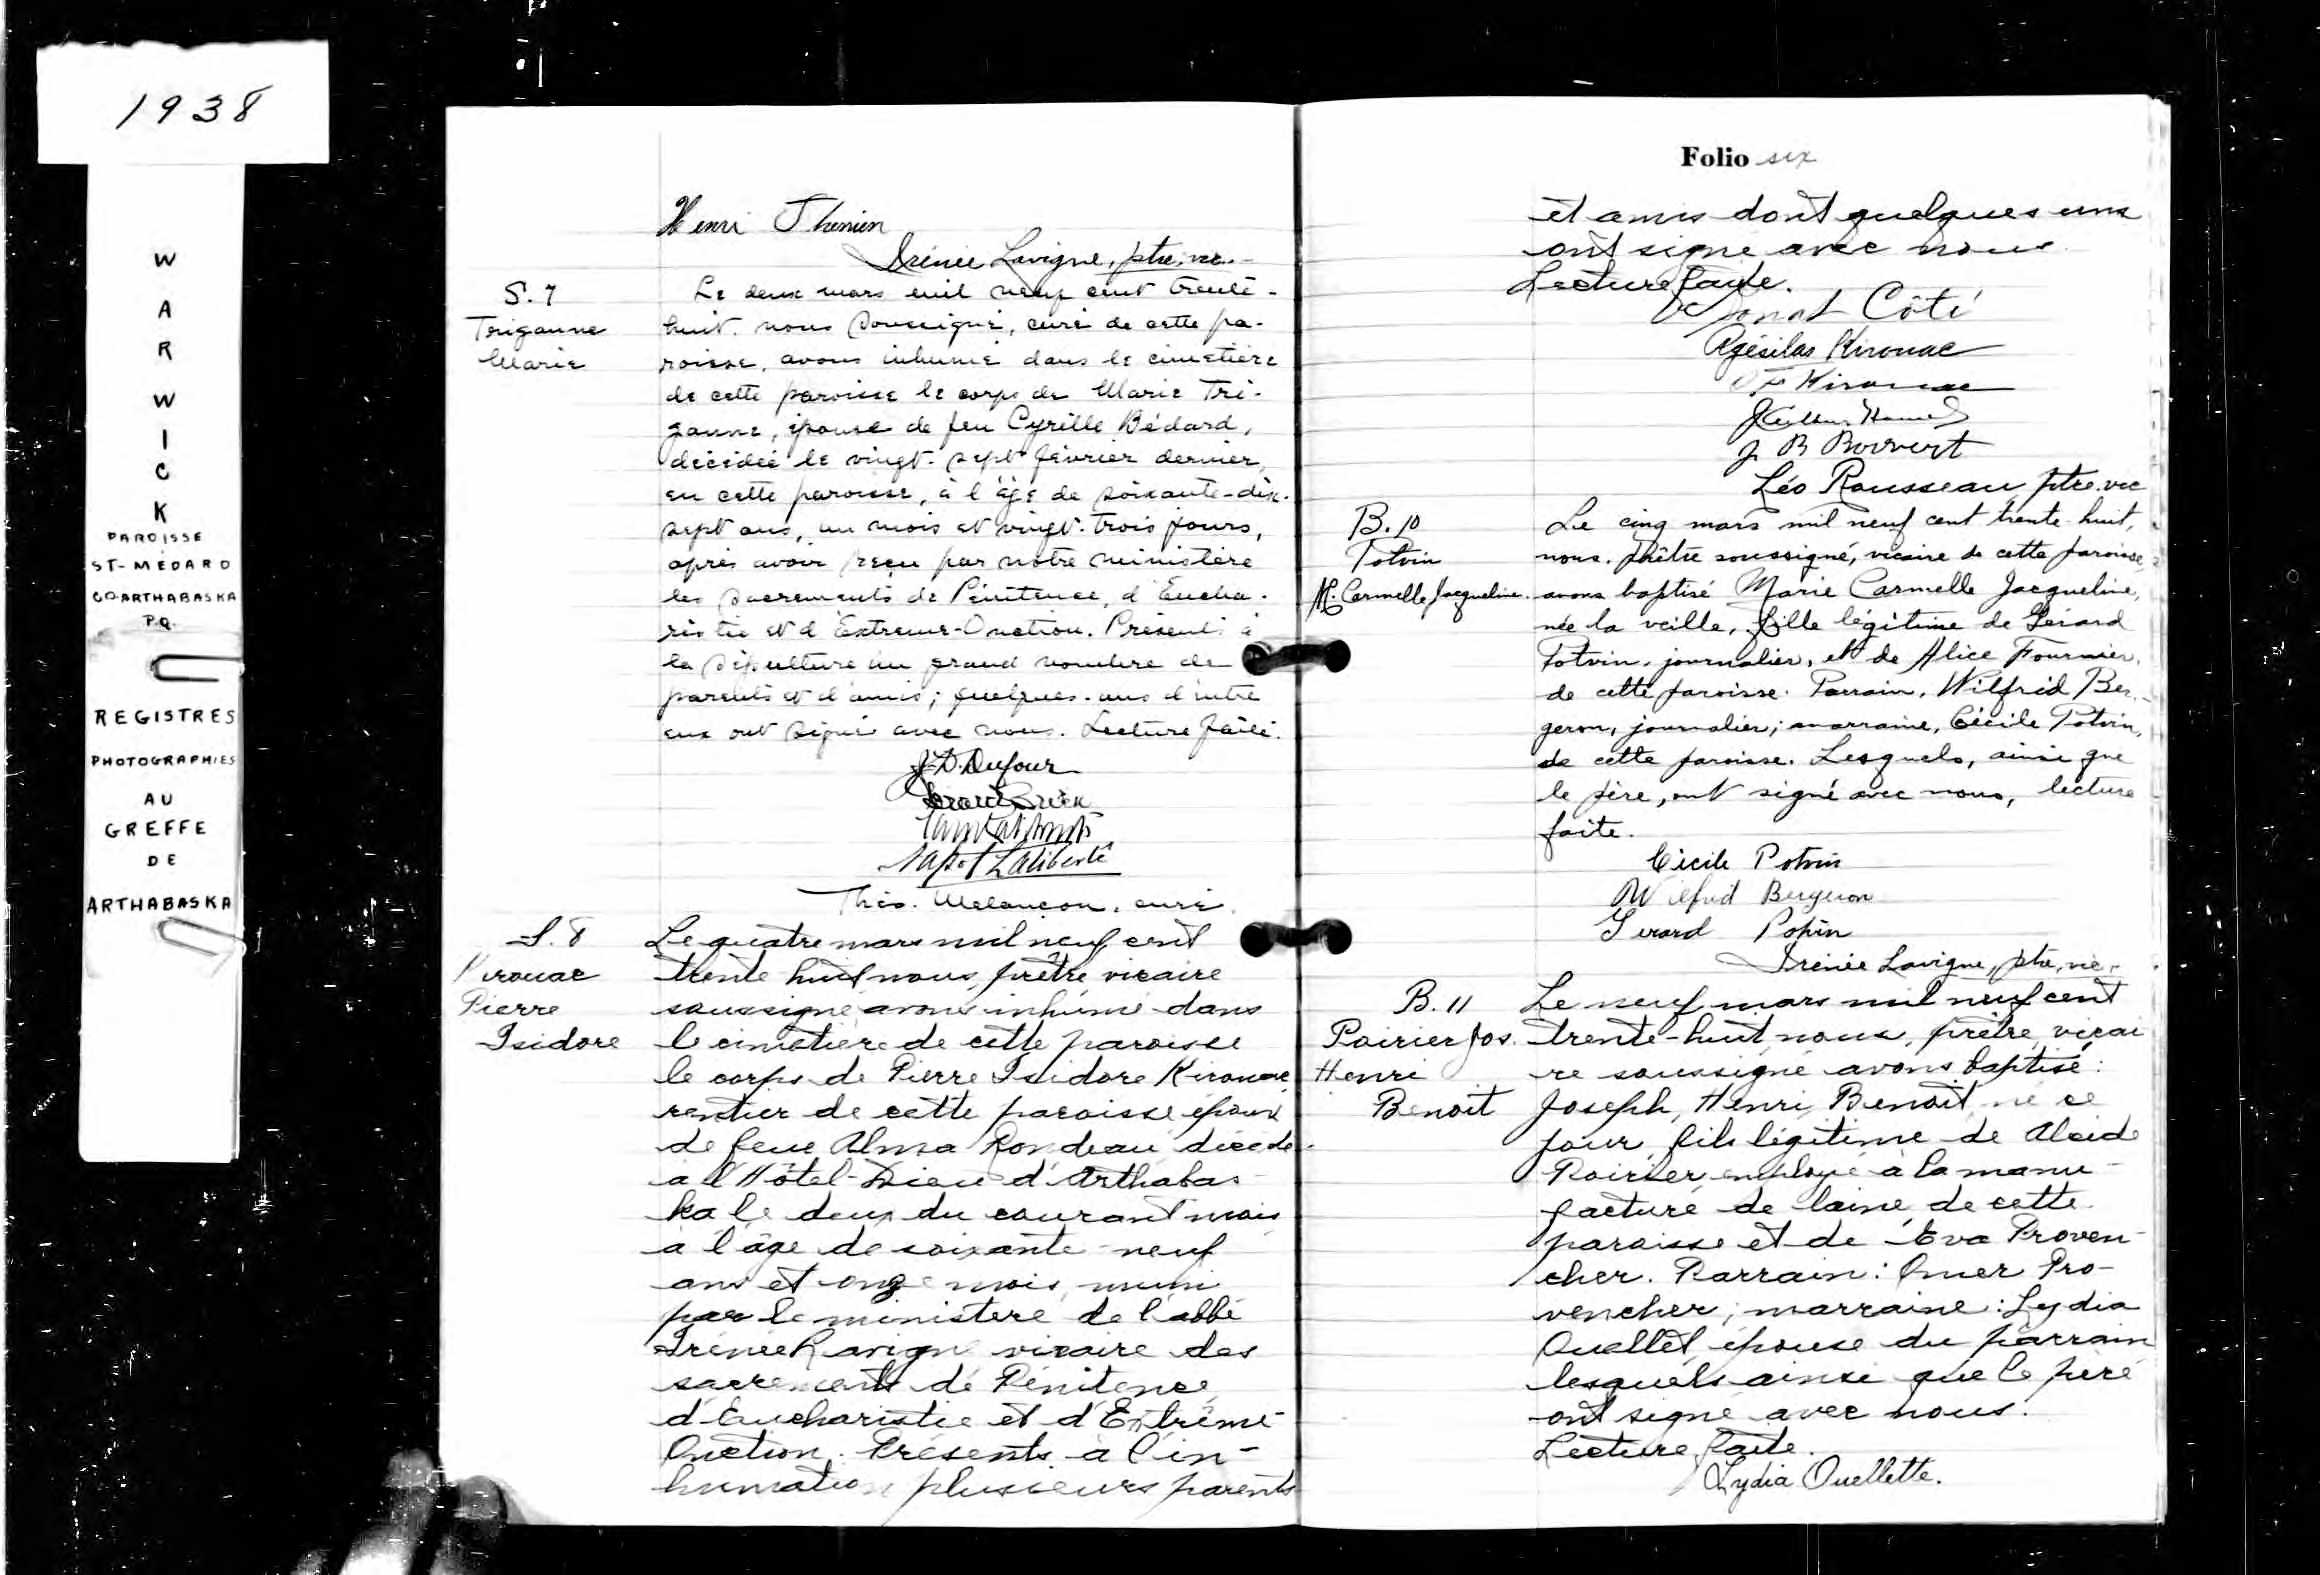 1938
WARWICK
PAROISSE
ST-MÉDARD
CO. ARTHABASKA
P.Q.
REGISTRES
PHOTOGRAPHIÉS
AU
GREFFE
DE
ARTHABASKA
Henri Thenien
Irénée Lavigne, ptre, vic.
S. 7
Triganne
Marie
Le deux mars mil neuf cent trente-
huit, nous soussigné, curé de cette pa-
roisse, avons inhumé dans le cimetière
de cette paroisse le corps de Marie Tri-
ganne, épouse de feu Cyrille Bédard,
décédée le vingt-sept février dernier,
en cette paroisse, à l'âge de soixante-dix-
sept ans, un mois et vingt-trois jours,
après avoir reçu par notre ministère
les sacrements de Pénitence, d'Eucha-
ristie et d'Extrême-Onction. Présents à
la sépulture un grand nombre de
parents et d'amis; quelques-uns d'entre
eux ont signé avec nous. Lecture faite.
J-D. Dufour
Napol Laliberté
Théo. Melançon, curé.
S. 8
Kirouac
Pierre
Isidore
Le quatre mars mil neuf cent
trente huit nous, prêtre vicaire
soussigné avons inhumé dans
le cimetière de cette paroisse
le corps de Pierre Isidore Kirouac
rentier de cette paroisse époux
de feue Alma Rondeau décédé
à l'Hôtel-Dieu d'Arthabas-
ka le deux du courant mois
à l'âge de soixante-neuf
ans et onze mois, muni
par le ministère de l'abbé
Irénée Lavigne vicaire des
sacrements de Pénitence
d'Eucharistie et d'Extrême-
Onction. Présents à l'in-
humation plusieurs parents
Folio six
et amis dont quelques uns
ont signé avec nous.
Lecture faite.
Donat Côté
Agésilas Kirouac
Kirouac
J Arthur Hamel
J. B Boisvert
Léo Rousseau ptre. vic
B. 10
Potvin
M. Carmelle Jacqueline.
Le cinq mars mil neuf cent trente-huit,
nous, prêtre soussigné, vicaire de cette paroisse,
avons baptisé Marie Carmelle Jacqueline,
née la veille, fille légitime de Gérard
Potvin, journalier, et de Alice Fournier,
de cette paroisse. Parrain, Wilfrid Ber-
geron, journalier; marraine, Cécile Potvin,
de cette paroisse. Lesquels, ainsi que
le père, ont signé avec nous, lecture
faite.
Cécile Potvin
Wilfrid Bergeron
Gerard Potvin
Irénée Lavigne, ptre, vic.
B. 11
Poirier Jos.
Henri
Benoit
Le neuf mars mil neuf cent
trente-huit nous, prêtre, vicai
re soussigné avons baptisé:
Joseph, Henri, Benoit, né ce
jour, fils légitime de Alcide
Poirier, employé à la manu-
facture de laine, de cette
paroisse et de Eva Proven-
cher. Parrain: Omer Pro-
vencher; marraine: Lydia
Ouellet, épouse du parrain
lesquels ainsi que le père
ont signé avec nous.
Lecture faite.
Lydia Ouellette.